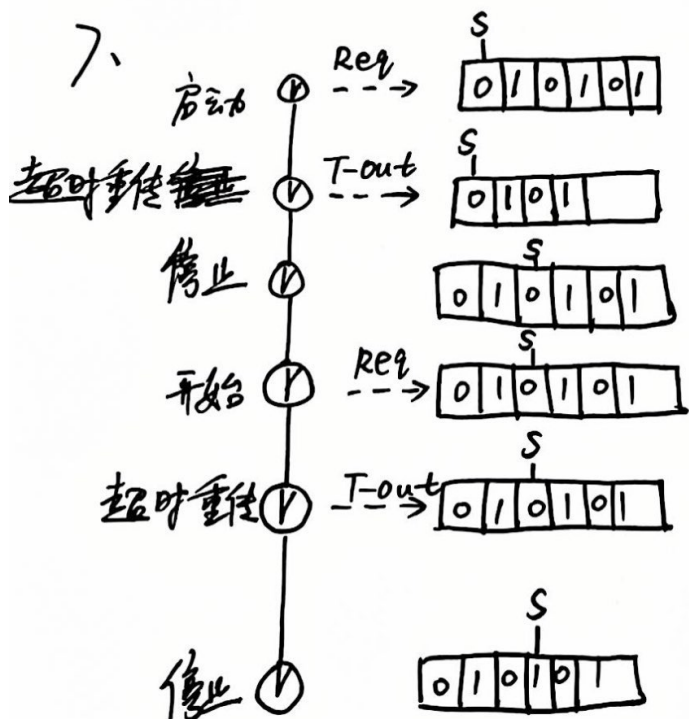 7、
S
启动 Req 0 1 0 1 0 1
S
超时重传 T-out 0 1 0 1
S
停止 0 1 0 1 0 1
S
开始 Req 0 1 0 1 0 1
S
超时重传 T-out 0 1 0 1 0 1
S
停止 0 1 0 1 0 1